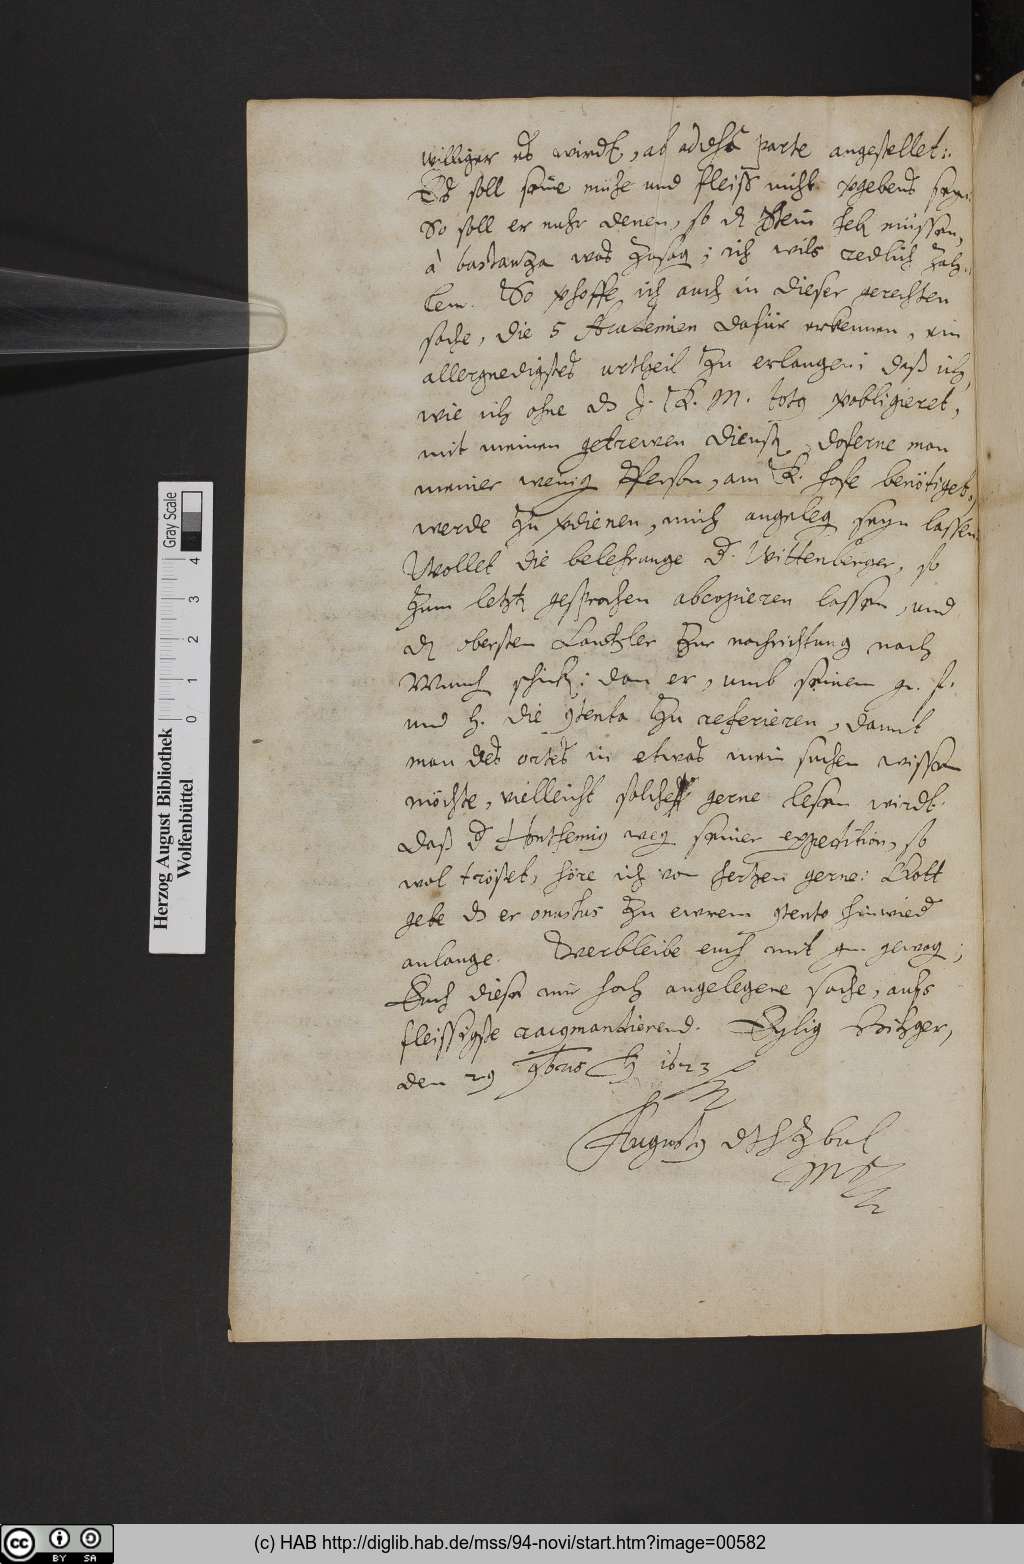 williger es wirdt, ab adversâ parte angestellet:
Es soll seine mühe und fleiss nicht vgebens seyn:
So soll er nuhr denen, so dz sein müssen,
à bastanza was zusag; ich wils redlich zah-
len. So vhoffe ich auch in dieser gerechten
sache, die 5 Academien dafür erkennen, ein
allergnedigstes urtheil zu erlangen: daß ich,
wie ich ohne ds J. K. M. totq vobligieret,
mit meinen getrewen dienst, doferne man
meiner wenig Person, am K. hofe benötiget,
werde zu vdienen, mich angeleg seyn lassen
Wollet die belehrunge d. Wittenberger, so
zum letzt gesprochen abcopieren lassen, und
dz obersten Cantzler zur nachrichtung nach
schick: dan er, umb seinem gn. f.
und h. die 9tenta zu referieren, damit
man des ortes in etwas mein sachen wissen
möchte, vielleicht solches gerne lesen wirdt.
Daß d weg seiner expedition, so
wol tröstet, höre ich von hertzen gerne: Gott
gebe ds er onustus zu ewrem 9tento hinwied
anlange. Verbleibe euch mit gn. gewog;
Euch diese mir hoch angelegene sache, aufs
fleissigste raccmantierend. Eylig Hitzger,
den 29 9bris 1623
Augustq
Herzog August Bibliothek
Wolfenbüttel
Gray Scale
0 1 2 3 4
(c) HAB http://diglib.hab.de/mss/94-novi/start.htm?image=00582
cc BY SA